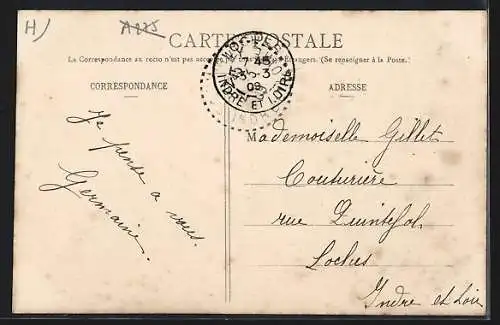 H) A225
CARTE POSTALE
La Correspondance au recto n'est pas acceptée par tous les Pays Étrangers. (Se renseigner à la Poste.)
CORRESPONDANCE
ADRESSE
INDRE ET LOIRE
Je pense a vous.
Germaine.
Mademoiselle Gillet
Couturière
rue Quintefol
Loches
Indre et Loire